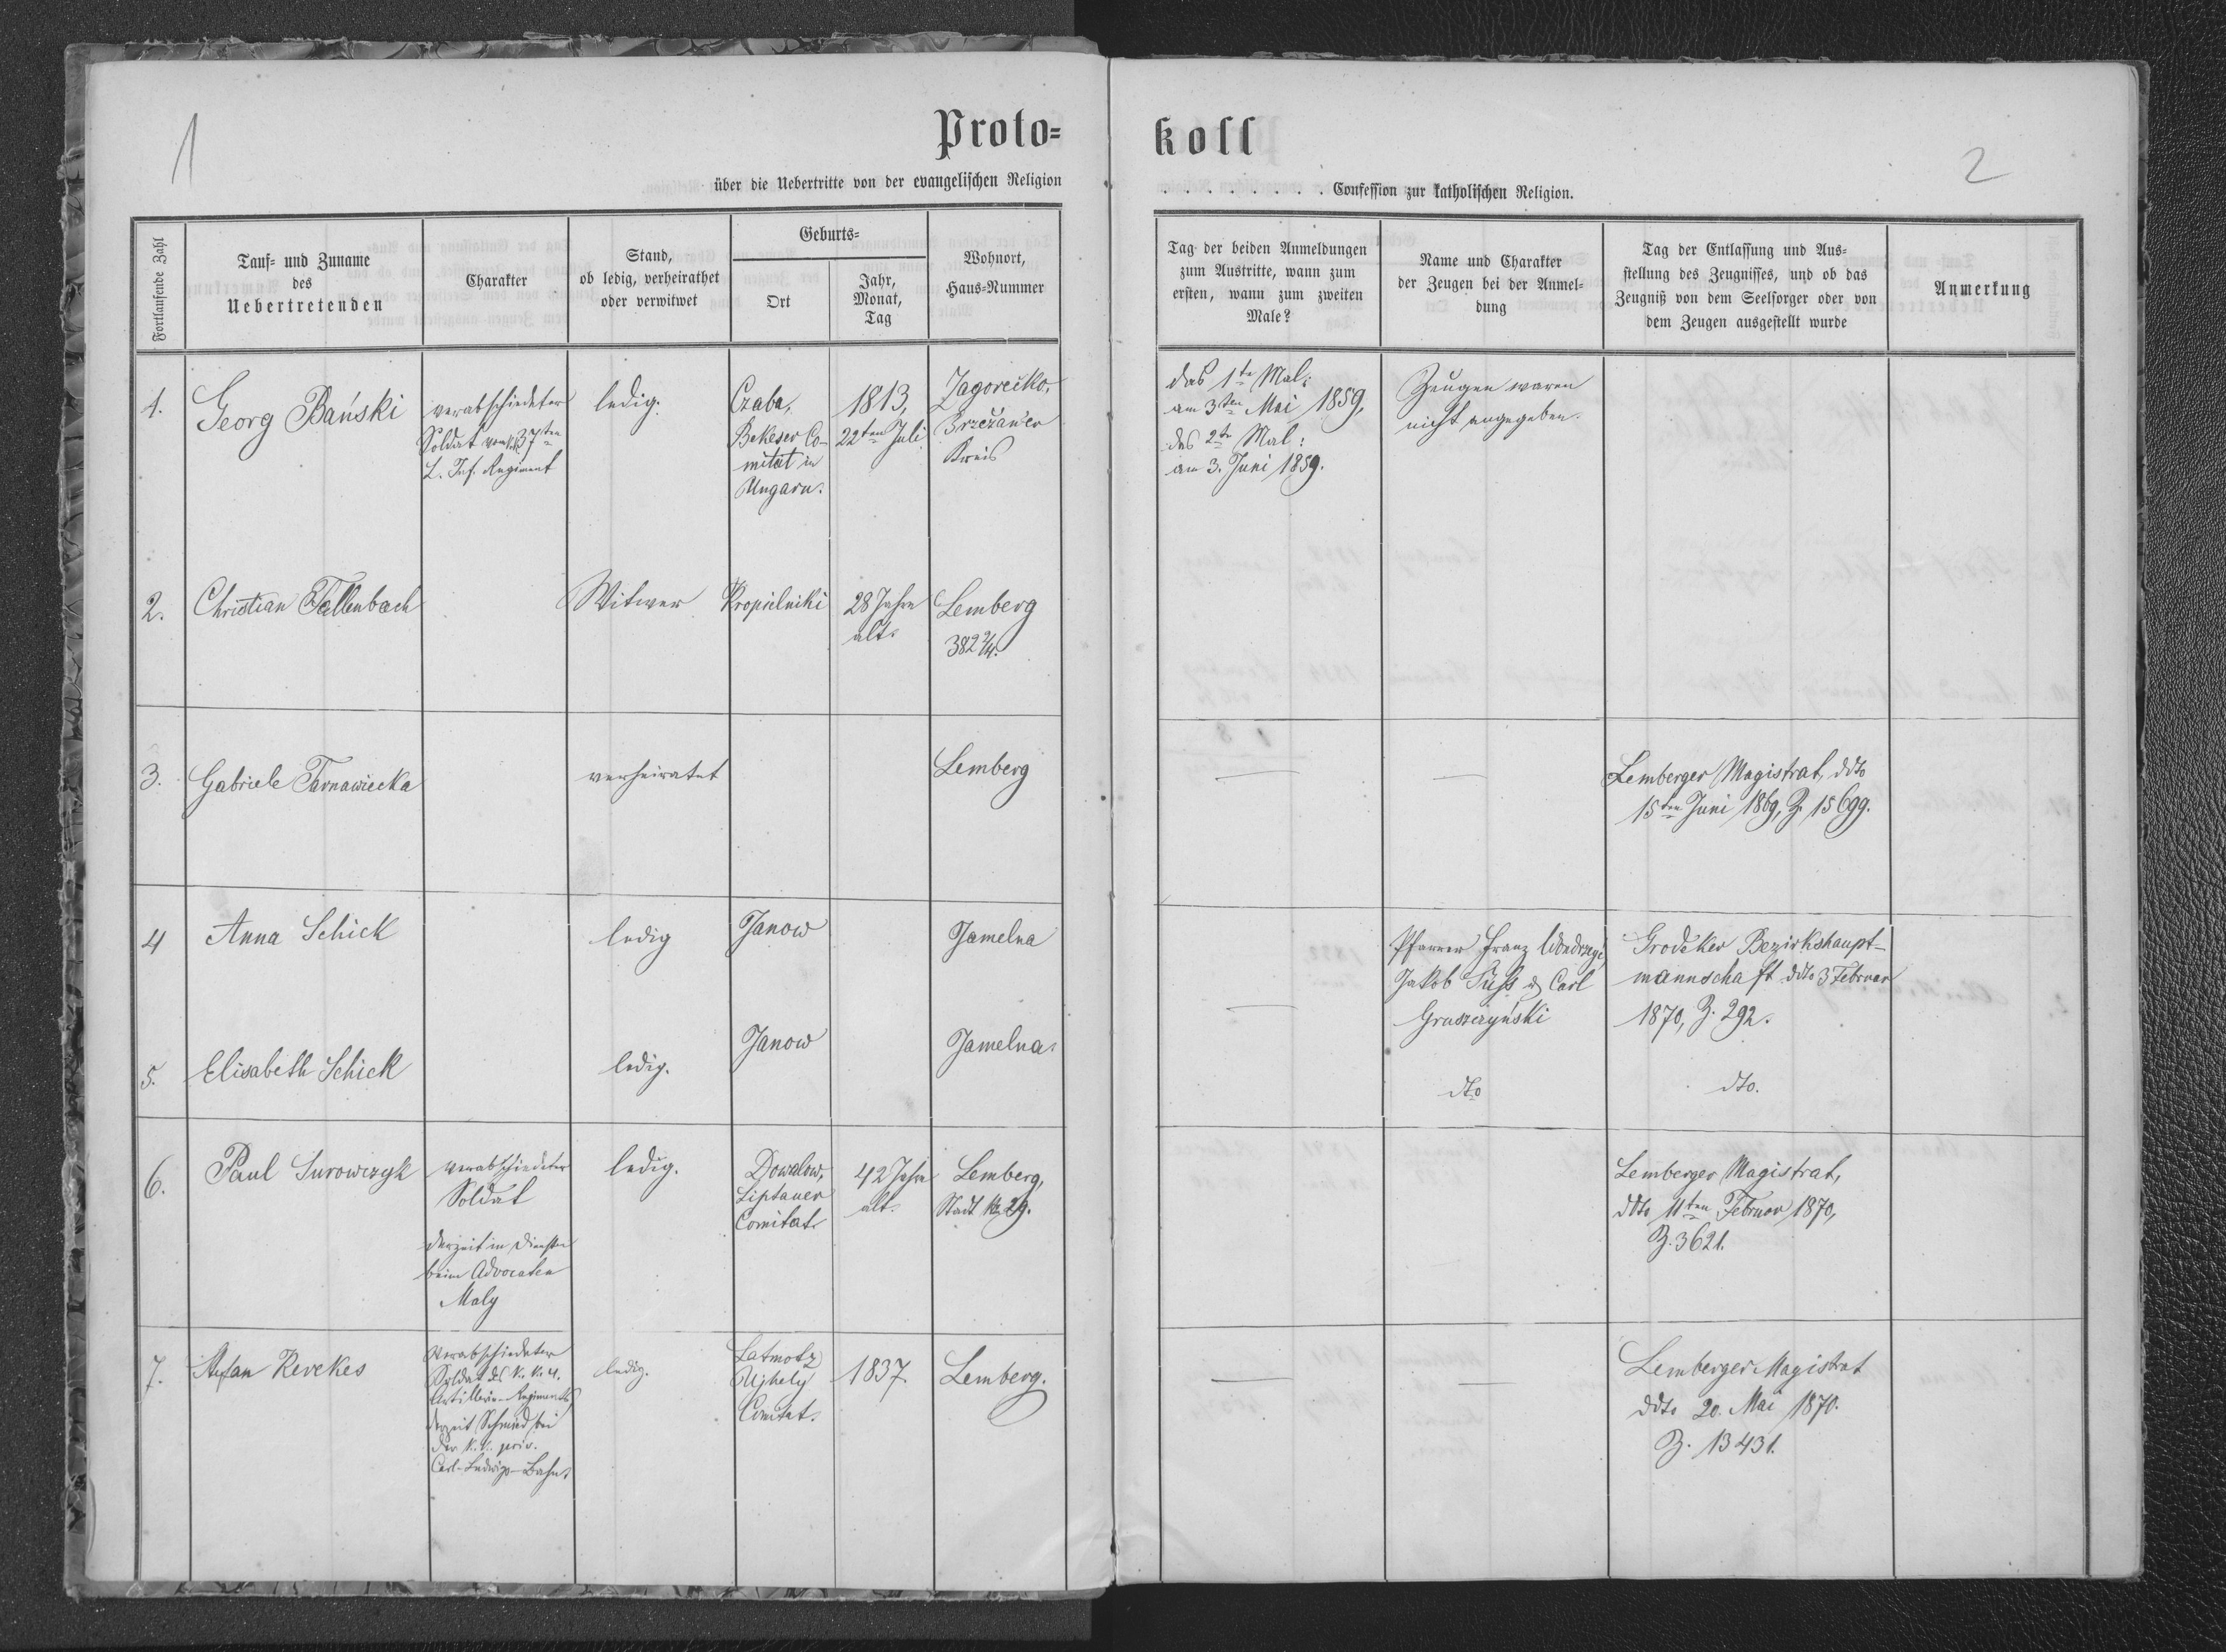 1
Proto=
über die Uebertritte von der evangelischen Religion
Fortlaufende Zahl
Tauf= und Zuname
des
Uebertretenden
Charakter
Stand,
ob ledig, verheirathet
oder verwitwet
Geburts=
Ort
Jahr,
Monat,
Tag
Wohnort,
Haus=Nummer
1.
Georg Bański
verabschiedeter
Soldat vom 37ten
L. Inf. Regiment
ledig.
Czaba,
Bekeser Co-
mitat in
Ungarn.
1813,
22ten Juli
Zagorečko,
Brzežaner
Kreis
2.
Christian Fallenbach
Witwer
Kropielniki
28 Jahre
alt.
Lemberg
382 2/4.
3.
Gabriele Tarnawiecka
verheiratet
Lemberg
4
Anna Schick
ledig
Janow
Jamelna
5.
Elisabeth Schick
ledig.
Janow
Jamelna.
6.
Paul Surowczyk
verabschiedeter
Soldat
derzeit in Diensten
beim Advocaten
Maly
ledig.
Dowalow,
Liptauer
Comitat.
42 Jahre
alt.
Lemberg,
Stadt No 29.
7.
Stefan Kerekes
Verabschiedeter
Soldat des k. k. 4.
Artillerie-Regiments,
derzeit Schmied bei
der k. k. priv.
Carl-Ludwigs-Bahn.
ledig.
Latmotz
Ujhely
Comitat.
1837.
Lemberg.
koll
2
. . . . . . . . . Confession zur katholischen Religion.
Tag der beiden Anmeldungen
zum Austritte, wann zum
ersten, wann zum zweiten
Male?
Name und Charakter
der Zeugen bei der Anmel=
dung
Tag der Entlassung und Aus=
stellung des Zeugnisses, und ob das
Zeugniß von dem Seelsorger oder von
dem Zeugen ausgestellt wurde
Anmerkung
das 1te Mal:
am 3ten Mai 1859,
das 2te Mal:
am 3. Juni 1859.
Zeugen waren
nicht angegeben.
Lemberger Magistrat, ddto
15ten Juni 1869, Z. 15699.
Pfarrer Franz
Jakob Süss & Carl
Gruszczyński
Grodeker Bezirkshaupt-
mannschaft ddto 3 Februar
1870, Z. 292.
dto
dto.
Lemberger Magistrat,
ddto 11ten Februar 1870,
Z. 3621.
Lemberger Magistrat
ddto 20. Mai 1870.
Z. 13431.